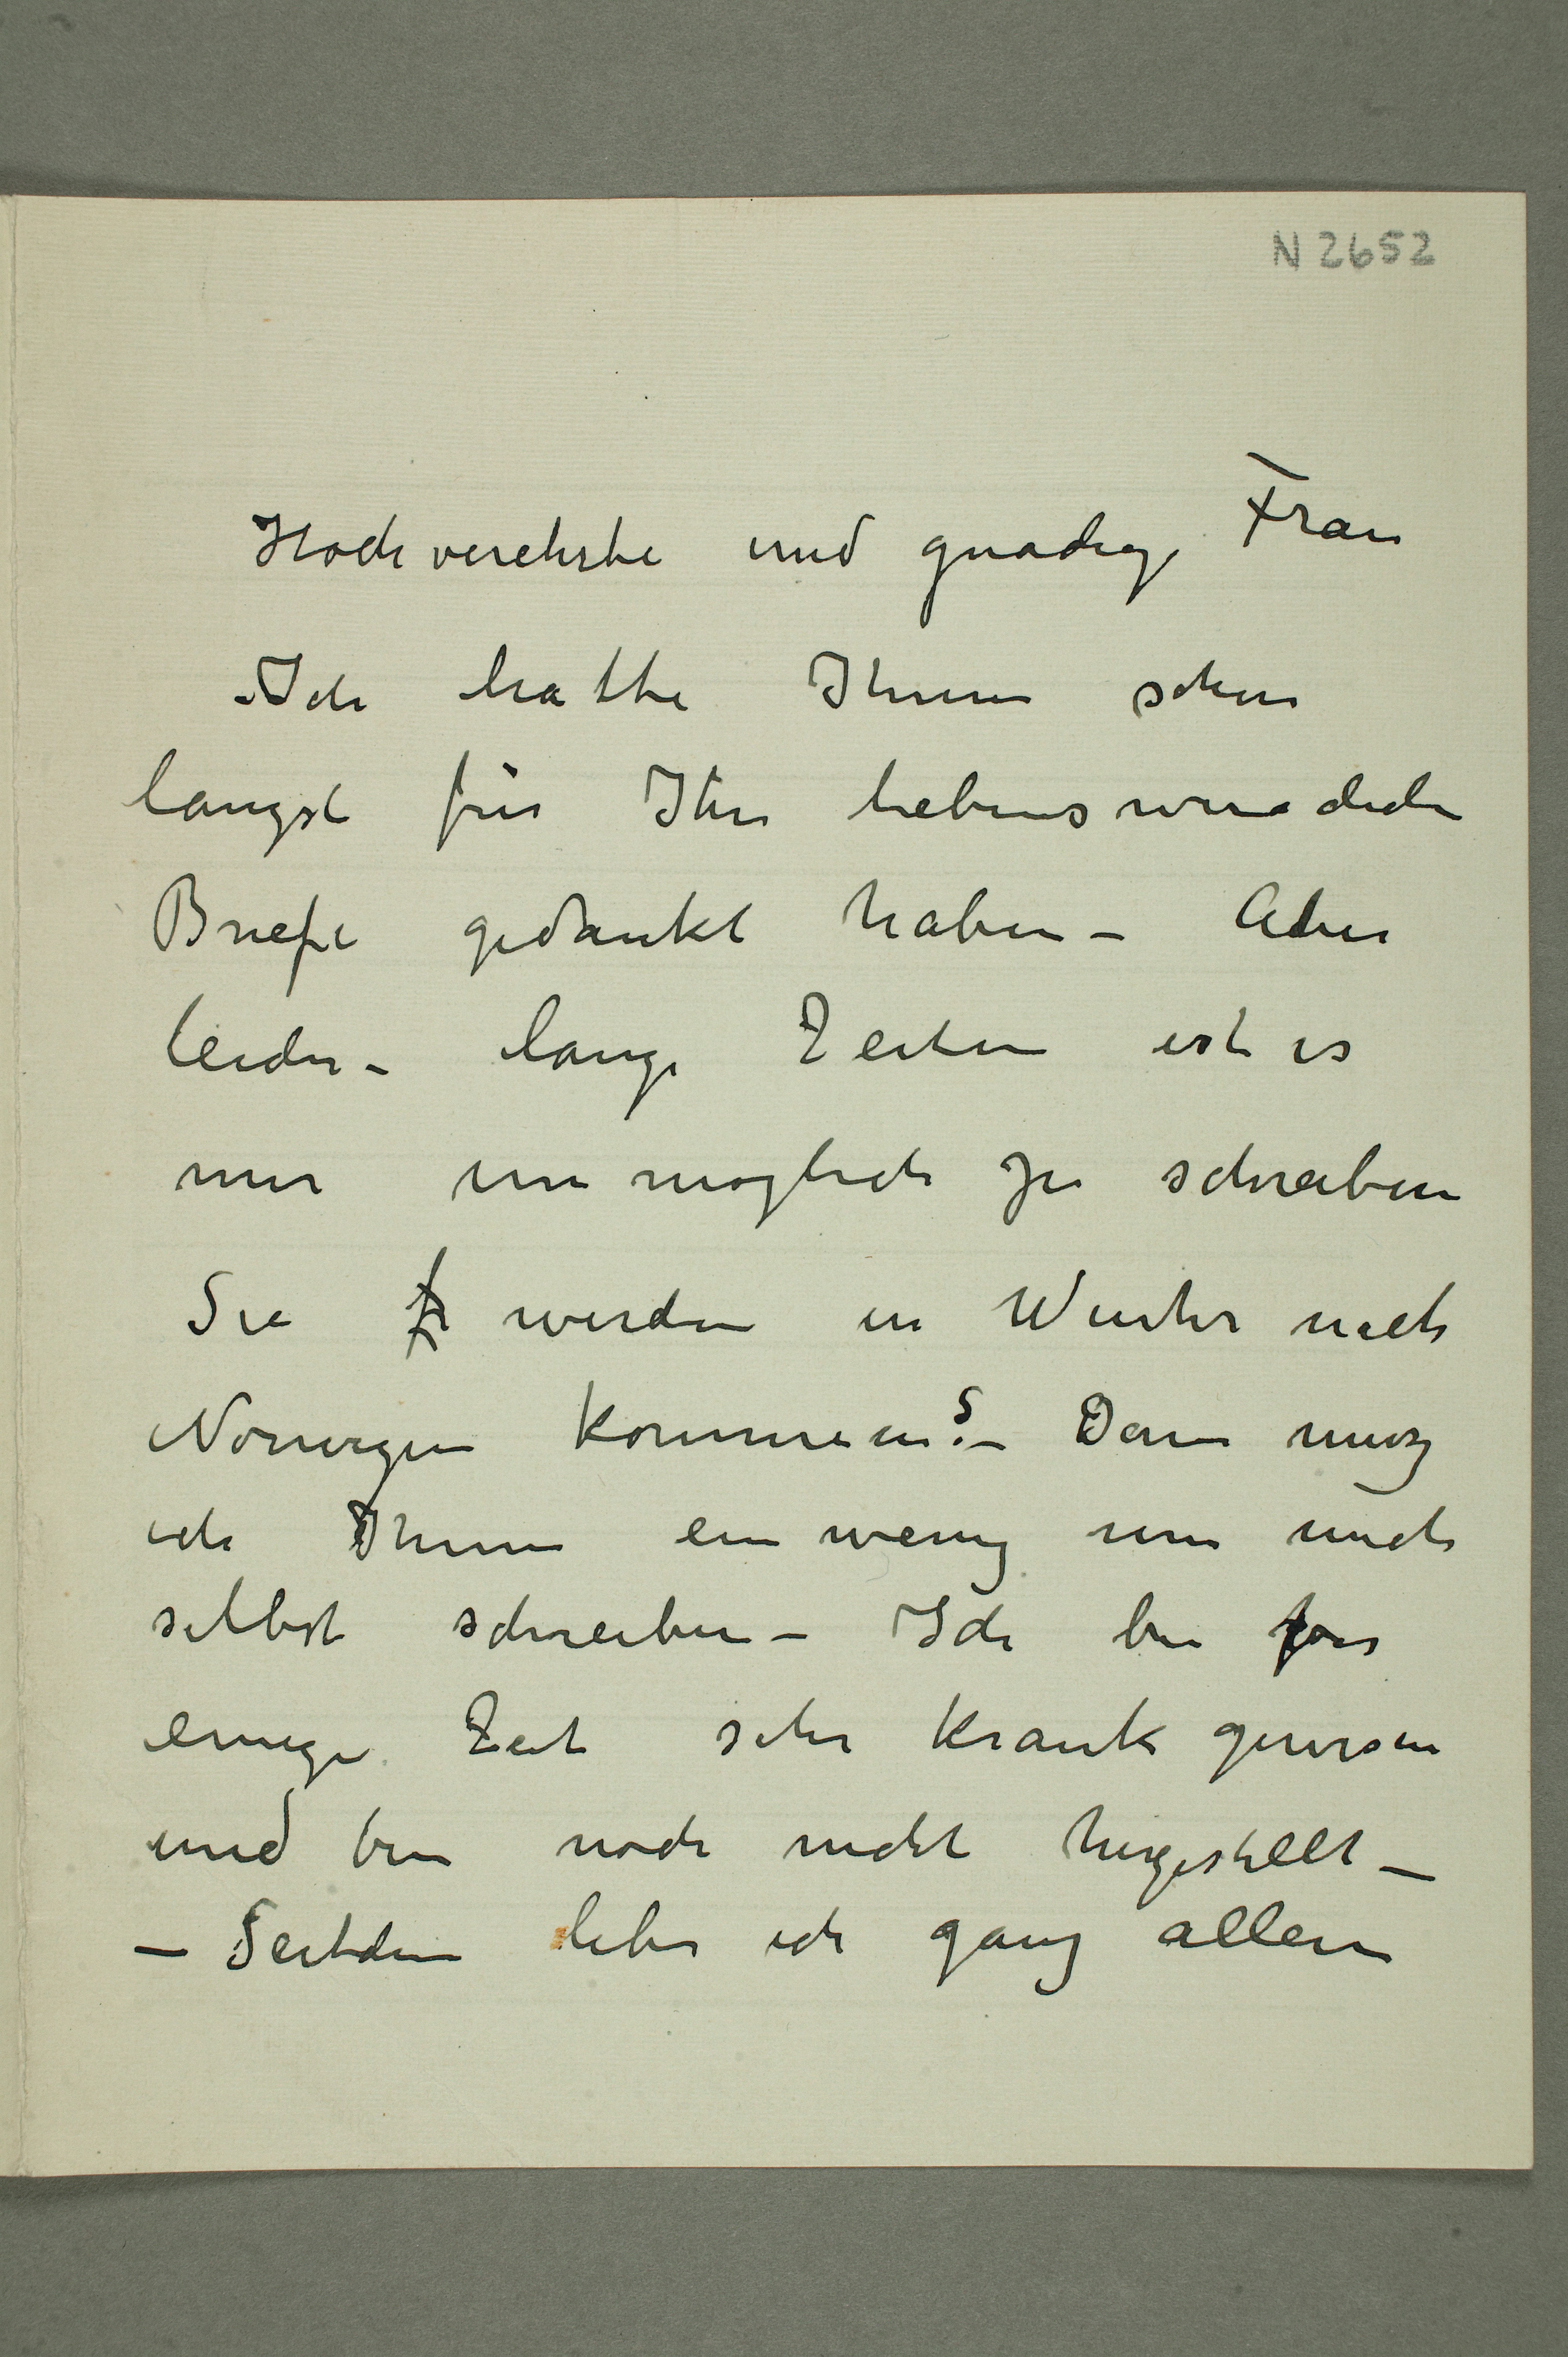 N 2652
Hochverehrte und gnadige Frau
Ich hatte Ihnen schon
langst für Ihre liebenswurdiche
Briefe gedankt haben – Aber
leider – lange Zeiten ist es
mir unmoglich zu schreiben
Sie werden in Winter nach
Norwegen kommen? – Dann muss
ich Ihnen ein wenig um mich
selbst schreiben – Ich bin for
einige Zeit sehr krank gewesen
und bin noch nicht hergestellt –
– Seitdem lebe ich ganz allein